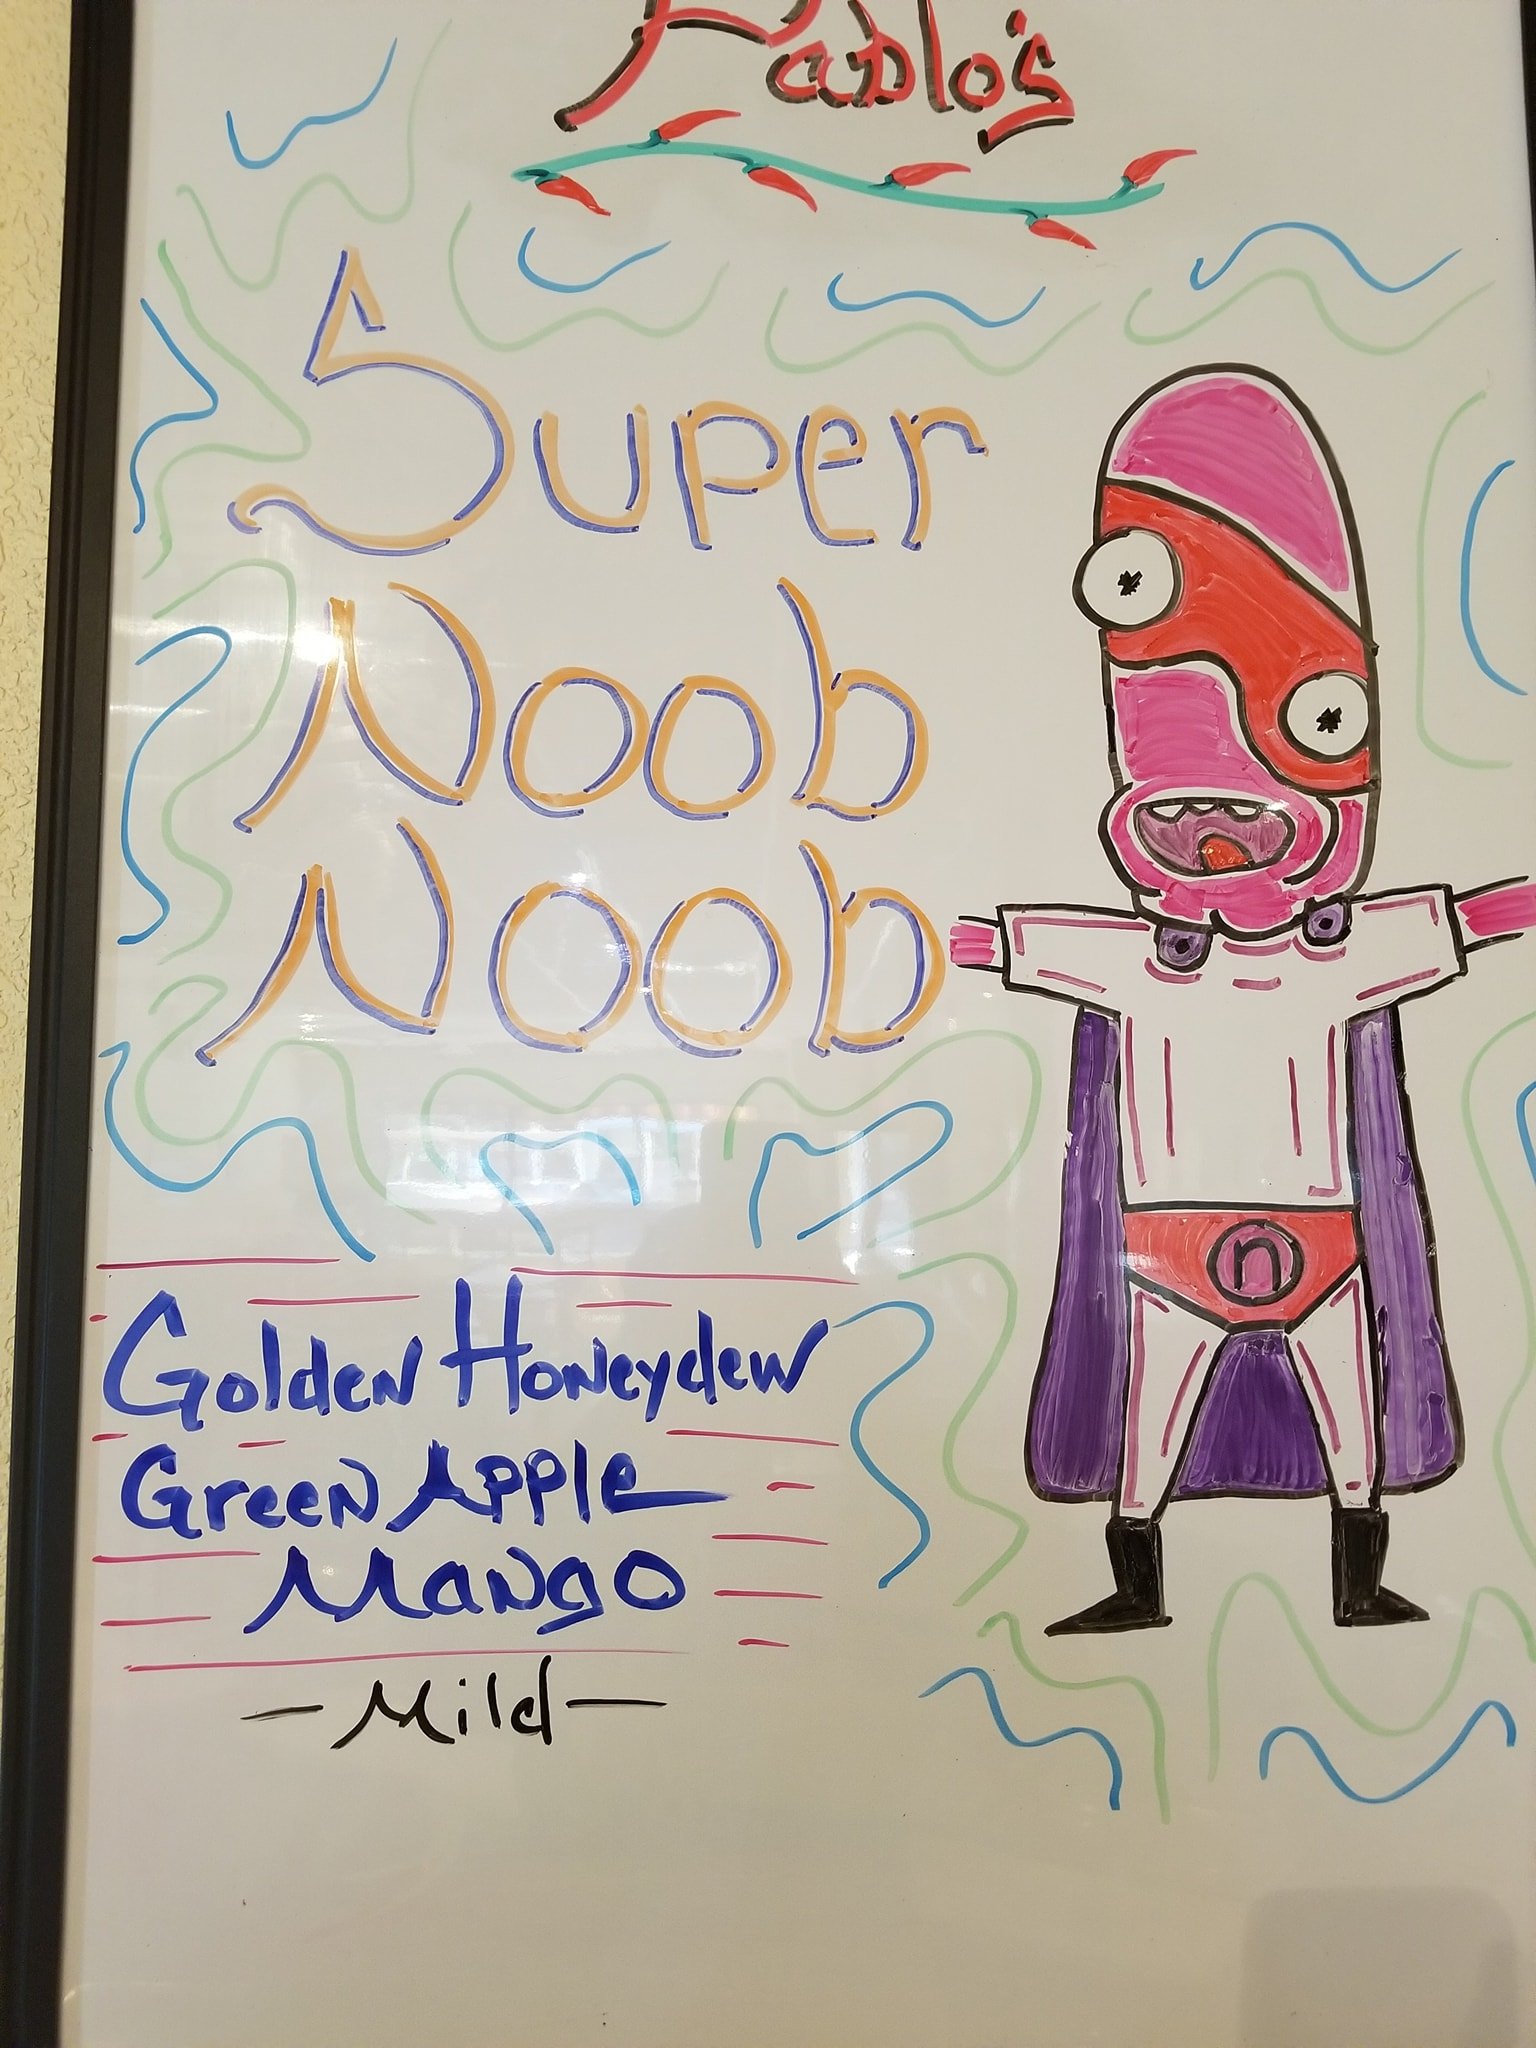 Pablo's
Super
Noob
Noob
n
Golden Honeydew
Green Apple
Mango
- Mild -